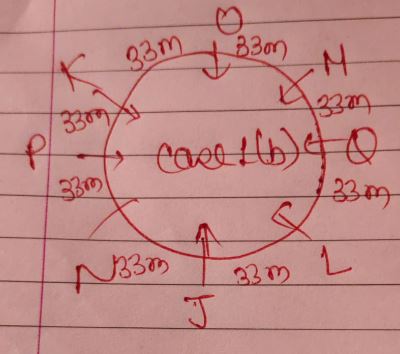 O
33m 33m
K M
33m 33m
P Case 1(b) Q
33m 33m
N 33m 33m L
J